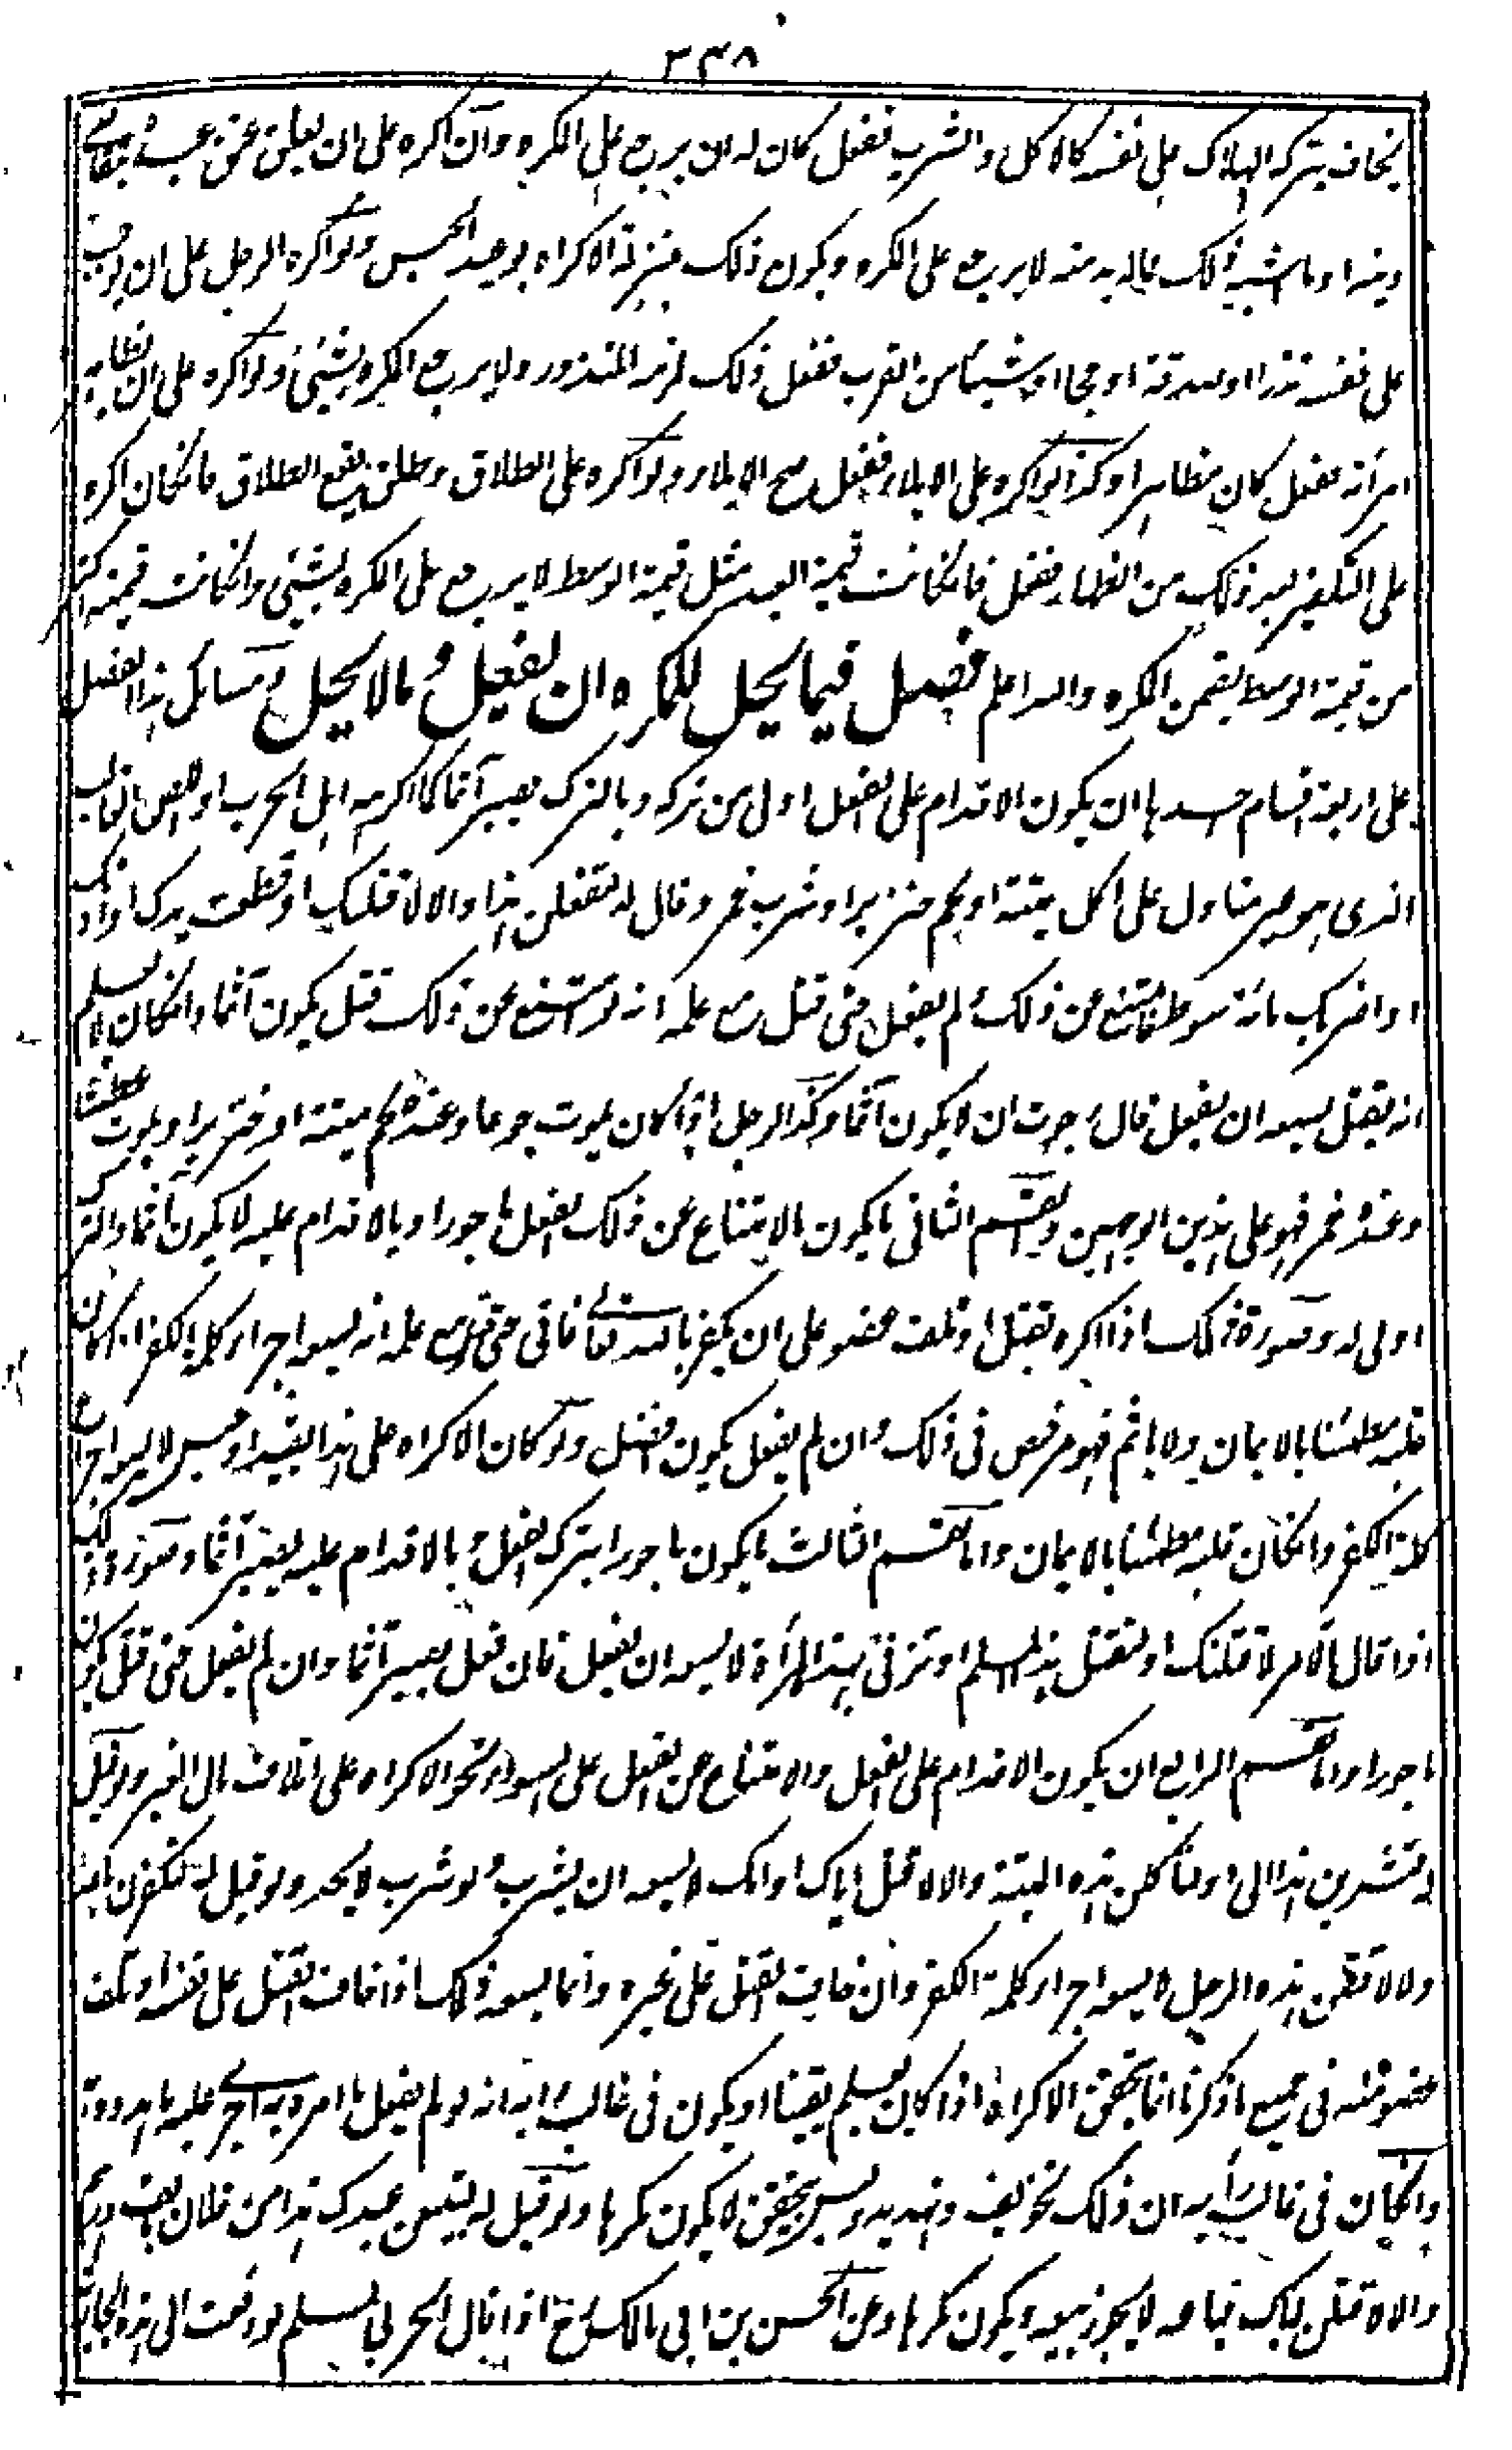 ٣٣٨
يخاف بتركه الهلاك على نفسه كالاكل والشرب ففعل كان له ان يرجع على المكره وان اكره على ان يعلق عتق عبده
منه او ما اشبه ذلك مما له بد منه لا يرجع على المكره ويكون ذلك بمنزلة الاكراه بوعيد الحبس ولو اكره الرجل على ان يوجب
على نفسه نذرا او صدقة او حجا او شيئا من القرب ففعل ذلك لزمه المنذور ولا يرجع على المكره بشيئ ولو اكره على ان يظاهر
امرأته ففعل كان مظاهرا وكذا لو اكره على الايلاء ففعل صح الايلاء ولو اكره على الطلاق وطلق يقع الطلاق فانكان اكره
على التكفير بعد ذلك من الظهار ففعل فانكانت قيمة العبد مثل قيمة الوسط لا يرجع على المكره بشيئ وانكانت قيمته اكثر
من قيمة الوسط يضمن المكره والله اعلم فصل فيما يحل للمكره ان يفعل وما لا يحل مسائل هذا الفصل
على اربعة اقسام احدها ان يكون الاقدام على الفعل اولى من تركه وبالترك يصير آثما كما اكرهه اهل الحرب او اللص الغالب
الذي هو غير متاول على اكل ميتة او لحم خنزير او شرب خمر وقال له لتفعلن هذا والا لاقتلنك او قطعت يدك او اذنك
او اضربك مائة سوط فامتنع عن ذلك ولم يفعل حتى قتل مع علمه انه لو امتنع عن ذلك قتل يكون آثما وانكان لا يعلم
انه يقتل يسعه ان يفعل قال رجوت ان لا يكون آثما وكذا الرجل اذا كان يموت جوعا وعنده لحم ميتة او خنزير او يموت عطشا
وعنده خمر فهو على هذين الوجهين والقسم الثاني ما يكون بالامتناع عن ذلك الفعل ماجورا وبالاقدام عليه لا يكون آثما والترك
اولى له وصورة ذلك اذا اكره بقتل او تلف عضو على ان يكفر بالله تعالى فابى حتى قتل مع علمه انه يسعه اجراء كلمة الكفر اذا كان
قلبه مطمئنا بالايمان ولا يأثم فهو مرخص في ذلك وان لم يفعل يكون افضل ولو كان الاكراه على هذا بقيد او حبس لا يسعه اجراء
كلمة الكفر وانكان قلبه مطمئنا بالايمان واما القسم الثالث ما يكون ماجورا بترك الفعل وبالاقدام عليه يصير آثما وصورة ذلك
اذا قال لآخر لاقتلنك او لتقتل هذا المسلم او تزني بهذه المرأة لا يسعه ان يفعل فان فعل يصير آثما وان لم يفعل حتى قتل كان
ماجورا واما القسم الرابع ان يكون الاقدام على الفعل والامتناع عن الفعل على السواء نحو الاكراه على اتلاف مال الغير ولو قيل
له لتشربن هذا او لتأكلن هذه الميتة والا لاقتل اباك او امك لا يسعه ان يشرب ولو شرب لا يحد ولو قيل له لتكفرن بالله
والا لاقتلن هذه الرجل لا يسعه اجراء كلمة الكفر وان خاف القتل على غيره وانما يسعه ذلك اذا خاف القتل على نفسه او تلف
عضو منه في جميع ما ذكرنا انما يتحقق الاكراه اذا كان يعلم يقينا او يكون في غالب رأيه انه لو لم يفعل ما امره به اجرى عليه ما هدده
وانكان في غالب رأيه ان ذلك تخويف وتهديد وليس بتحقيق لا يكون مكرها ولو قيل له لتبيعن عبدك هذا من فلان بالف درهم
والا لاقتلن اباك فباعه لا يجوز بيعه ويكون مكرها وعن الحسن بن ابي مالك اذا قال الحربي لمسلم لو دفعت الى هذه الجارية